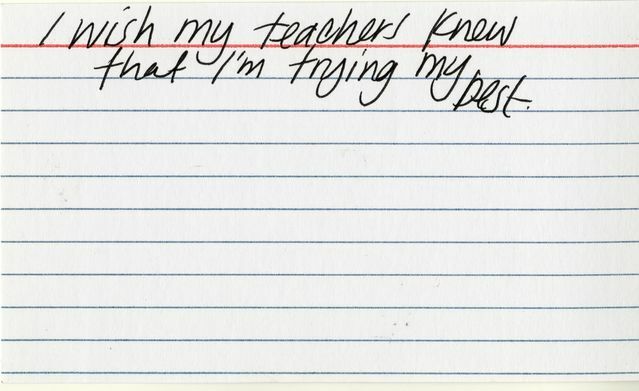 I wish my teachers knew
that I'm trying my best.